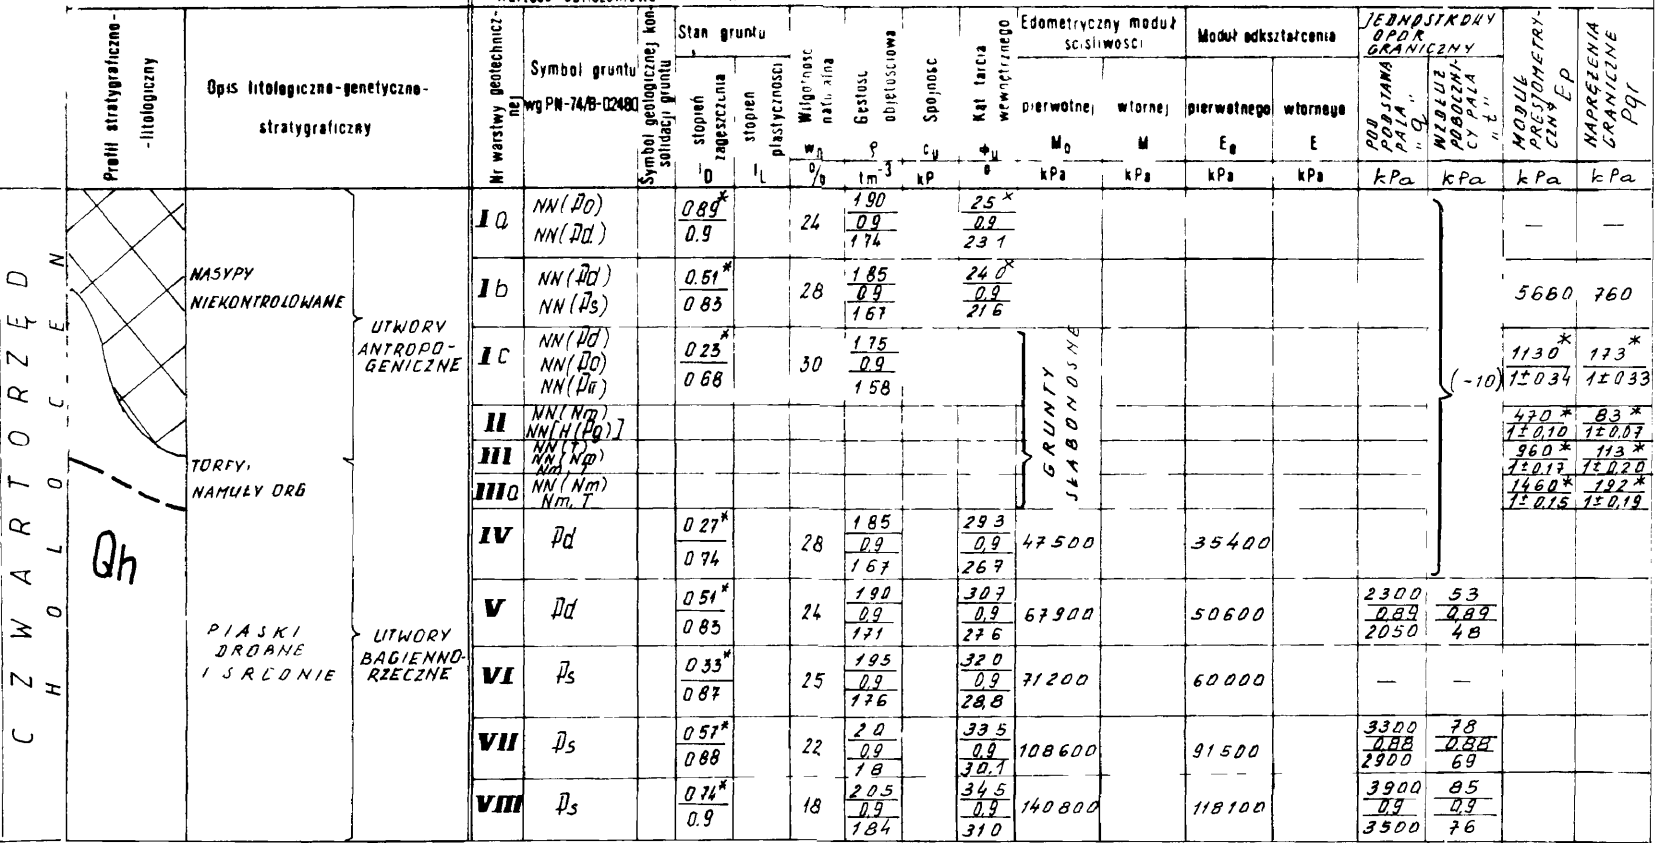 Profil stratygraficzno-
-litologiczny
Opis litologiczno-genetyczno-
stratygraficzny
Nr warstwy geotechnicz-
nej
Symbol gruntu
wg PN-74/B-02480
Symbol geologicznej kon-
solidacji gruntu
Stan gruntu
stopień
zagęszczenia
I_D
stopień
plastyczności
I_L
Wilgotność
naturalna
w_n
%
Gęstość
objętościowa
ρ
tm⁻³
Spójność
c_u
kP
Kąt tarcia
wewnętrznego
Φ_u
°
Edometryczny moduł
ściśliwości
pierwotnej
M_0
kPa
wtórnej
M
kPa
Moduł odkształcenia
pierwotnego
E_0
kPa
wtórnego
E
kPa
JEDNOSTKOWY
OPÓR
GRANICZNY
POD
PODSTAWĄ
PALA
"q"
kPa
WZDŁUŻ
POBOCZNI-
CY PALA
"t"
kPa
MODUŁ
PRESJOMETRY-
CZNY
EP
kPa
NAPRĘŻENIA
GRANICZNE
Pgr
kPa
CZWARTORZĘD
HOLOCEN
Qh
NASYPY
NIEKONTROLOWANE
UTWORY
ANTROPO-
GENICZNE
TORFY,
NAMUŁY ORG
PIASKI
DROBNE
I ŚREDNIE
UTWORY
BAGIENNO-
RZECZNE
GRUNTY
SŁABONOSNE
(-10)
Ia NN(Po) NN(Pd) 0.89* 0.9 24 1.90 0.9 1.74 25* 0.9 23.1 — —
Ib NN(Pd) NN(Ps) 0.51* 0.83 28 1.85 0.9 1.67 24.0* 0.9 21.6 5680 760
Ic NN(Pd) NN(Po) NN(Pπ) 0.23* 0.68 30 1.75 0.9 1.58 1130* 1±0.34 173* 1±0.33
II NN(Nm) NN[H(Pg)] 470* 1±0,10 83* 1±0,07
III NN(T) Nm, T 960* 1±0.17 113* 1±0,20
IIIa NN(Nm) Nm, T 1460* 1±0,15 192* 1±0,19
IV Pd 0.27* 0.74 28 1.85 0.9 1.67 29.3 0,9 26.7 47500 35400
V Pd 0.51* 0.83 24 1.90 0.9 1.71 30.7 0,9 27.6 67900 50600 2300 0,89 2050 53 0,89 48
VI Ps 0.33* 0.87 25 1.95 0.9 1.76 32.0 0,9 28,8 71200 60000 — —
VII Ps 0.57* 0.88 22 2.0 0.9 1.8 33.5 0.9 30.1 108600 91500 3300 0.88 2900 78 0.88 69
VIII Ps 0.74* 0.9 18 2.05 0.9 1.84 34.5 0.9 31.0 140800 118100 3900 0.9 3500 85 0,9 76